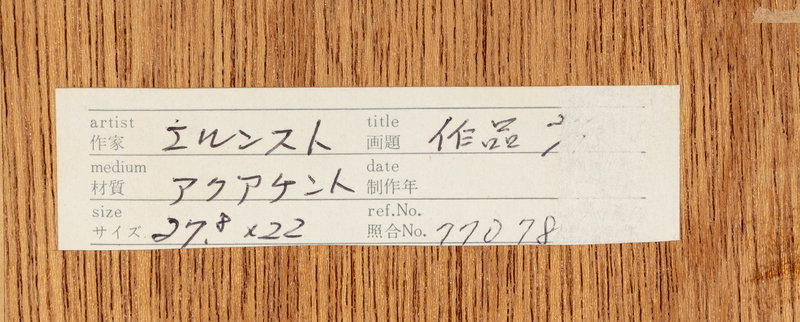 artist title
作家 エルンスト 画題 作品
medium date
材質 アクアケント 制作年
size ref.No.
サイズ 27.8 x22 照合No. 77078